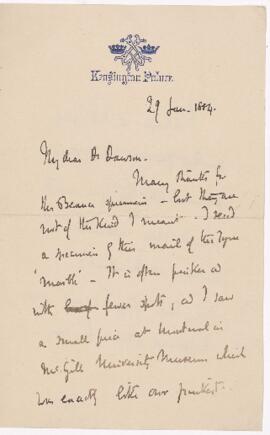 Kensington Palace.
29 Jan. 1884.
My dear Dr Dawson.
Many thanks for
the specimens - but they are
not of the kind I meant. I send
a specimen of this
It is often
with fewer spots, and I saw
a small piece at Montreal in
McGill University Museum which
was exactly like our